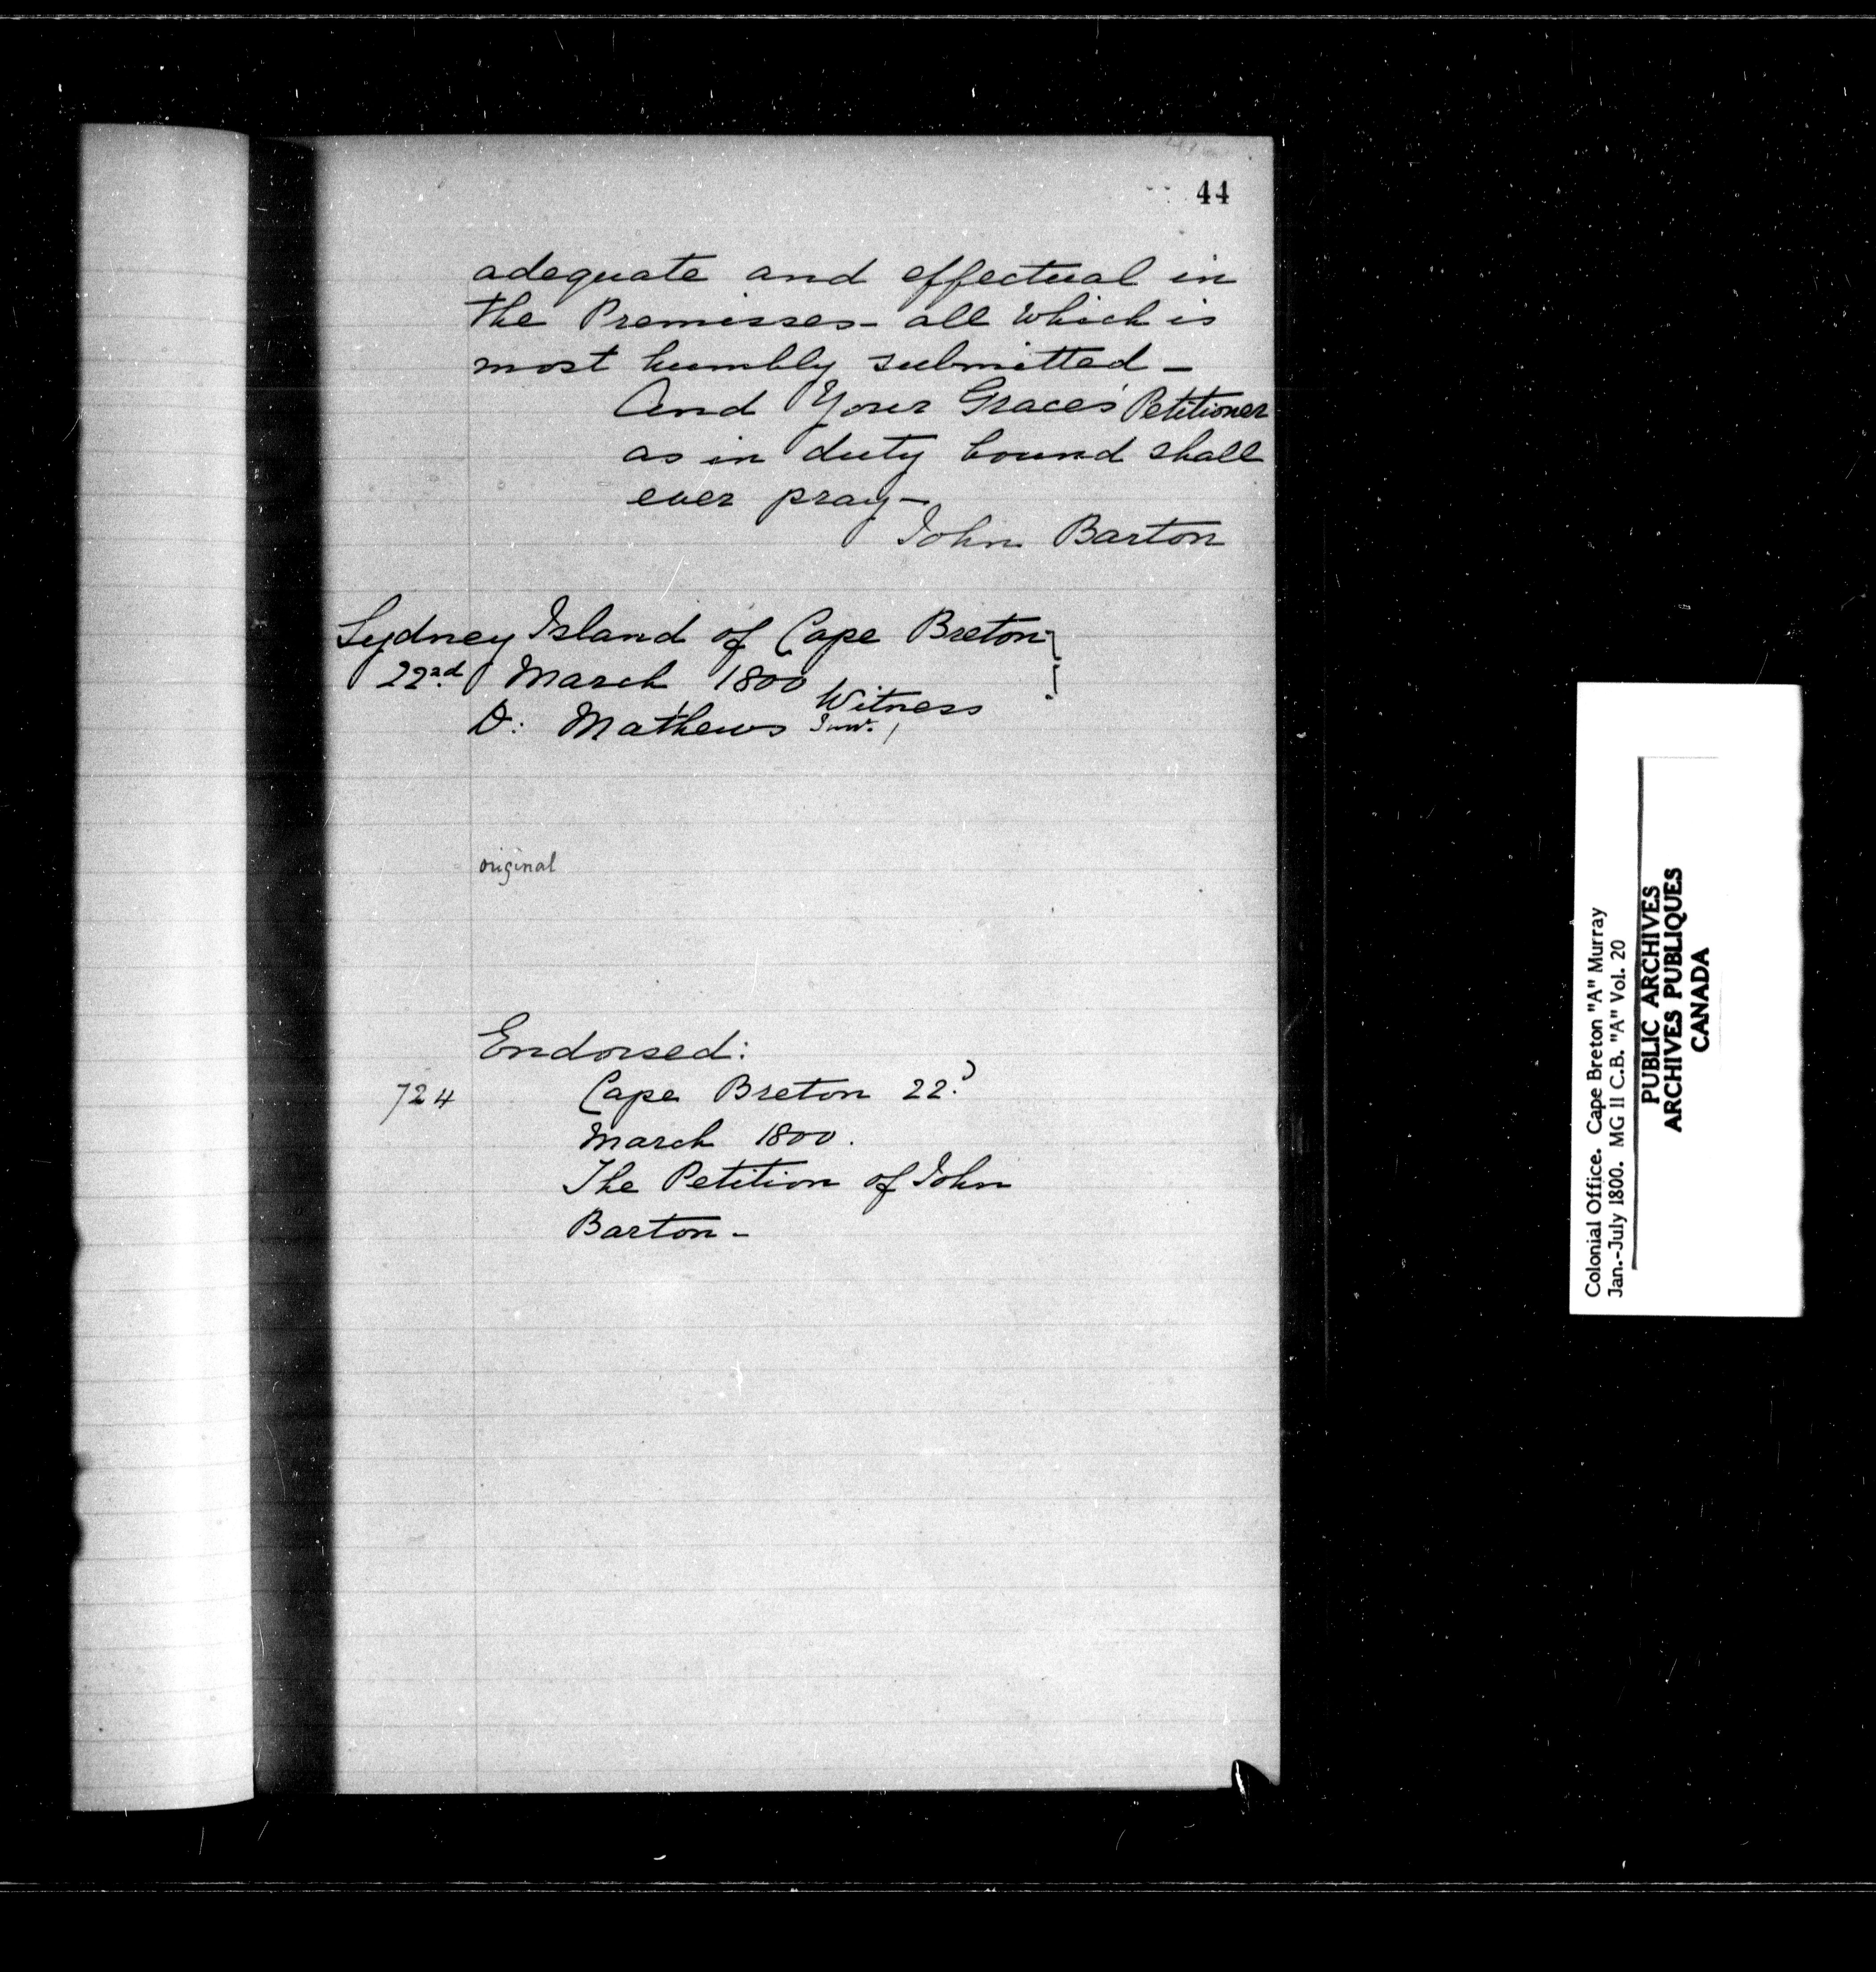 44
adequate and effectual in
the Premisses - all which is
most humbly submitted -
And Your Grace's Petitioner
as in duty bound shall
ever pray -
John Barton
Sydney Island of Cape Breton
22nd March 1800
Witness
D: Mathews Junr.
original
Endorsed:
724
Cape Breton 22d
March 1800.
The Petition of John
Barton -
Colonial Office. Cape Breton "A" Murray
Jan.-July 1800. MG 11 C.B. "A" Vol. 20
PUBLIC ARCHIVES
ARCHIVES PUBLIQUES
CANADA